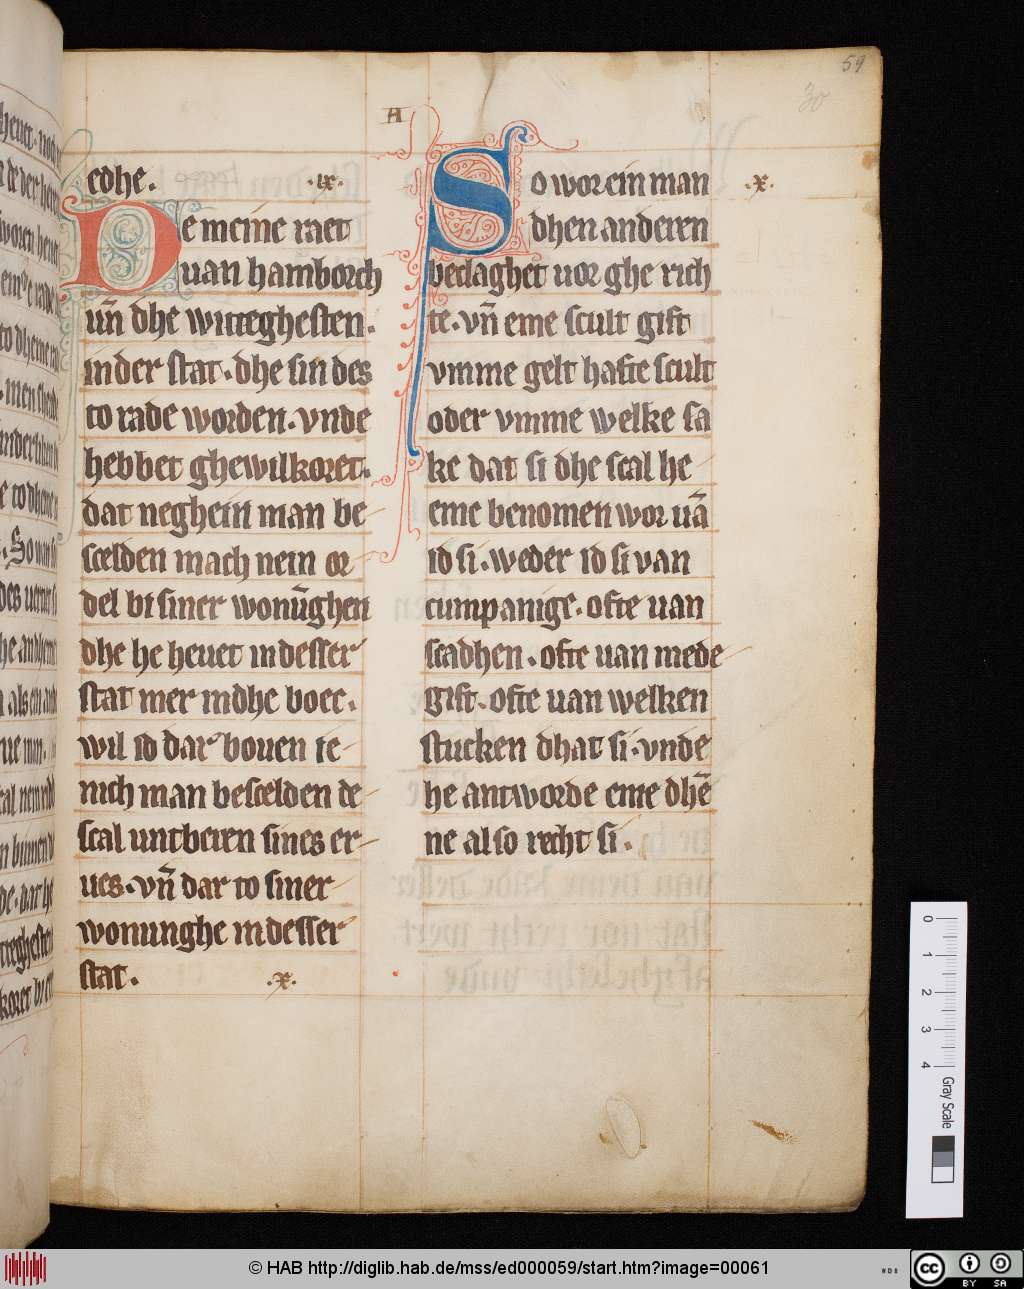 59
30
edhe. .ix.
De meine raet
uan hamborch
un̄ dhe witteghesten.
inder stat. dhe sin des
to rade worden. vnde
hebbet ghewilkoret.
dat neghein man be-
scelden mach nein or-
del bi siner wonūghen
dhe he heuet in desser
stat mer in dhe boec.
wil id dar bouen ie-
nich man bescelden de-
scal untberen sines er-
ues. vn̄ dar to siner
woninghe in desser
stat. .x.
A
So wor ein man .x.
dhen anderen
beclaghet uor ghe rich
te. vn̄ eme scult gift
vmme gelt hafte scult
oder vmme welke sa
ke dat si dhe scal he
eme benomen wor uā
id si. weder id si van
cumpanige. ofte uan
scadhen. ofte uan mede
gift. ofte uan welken
stucken dhat si. vnde
he antworde eme dhē
ne also recht si.
0 1 2 3 4 Gray Scale
© HAB http://diglib.hab.de/mss/ed000059/start.htm?image=00061
WDB
cc BY SA